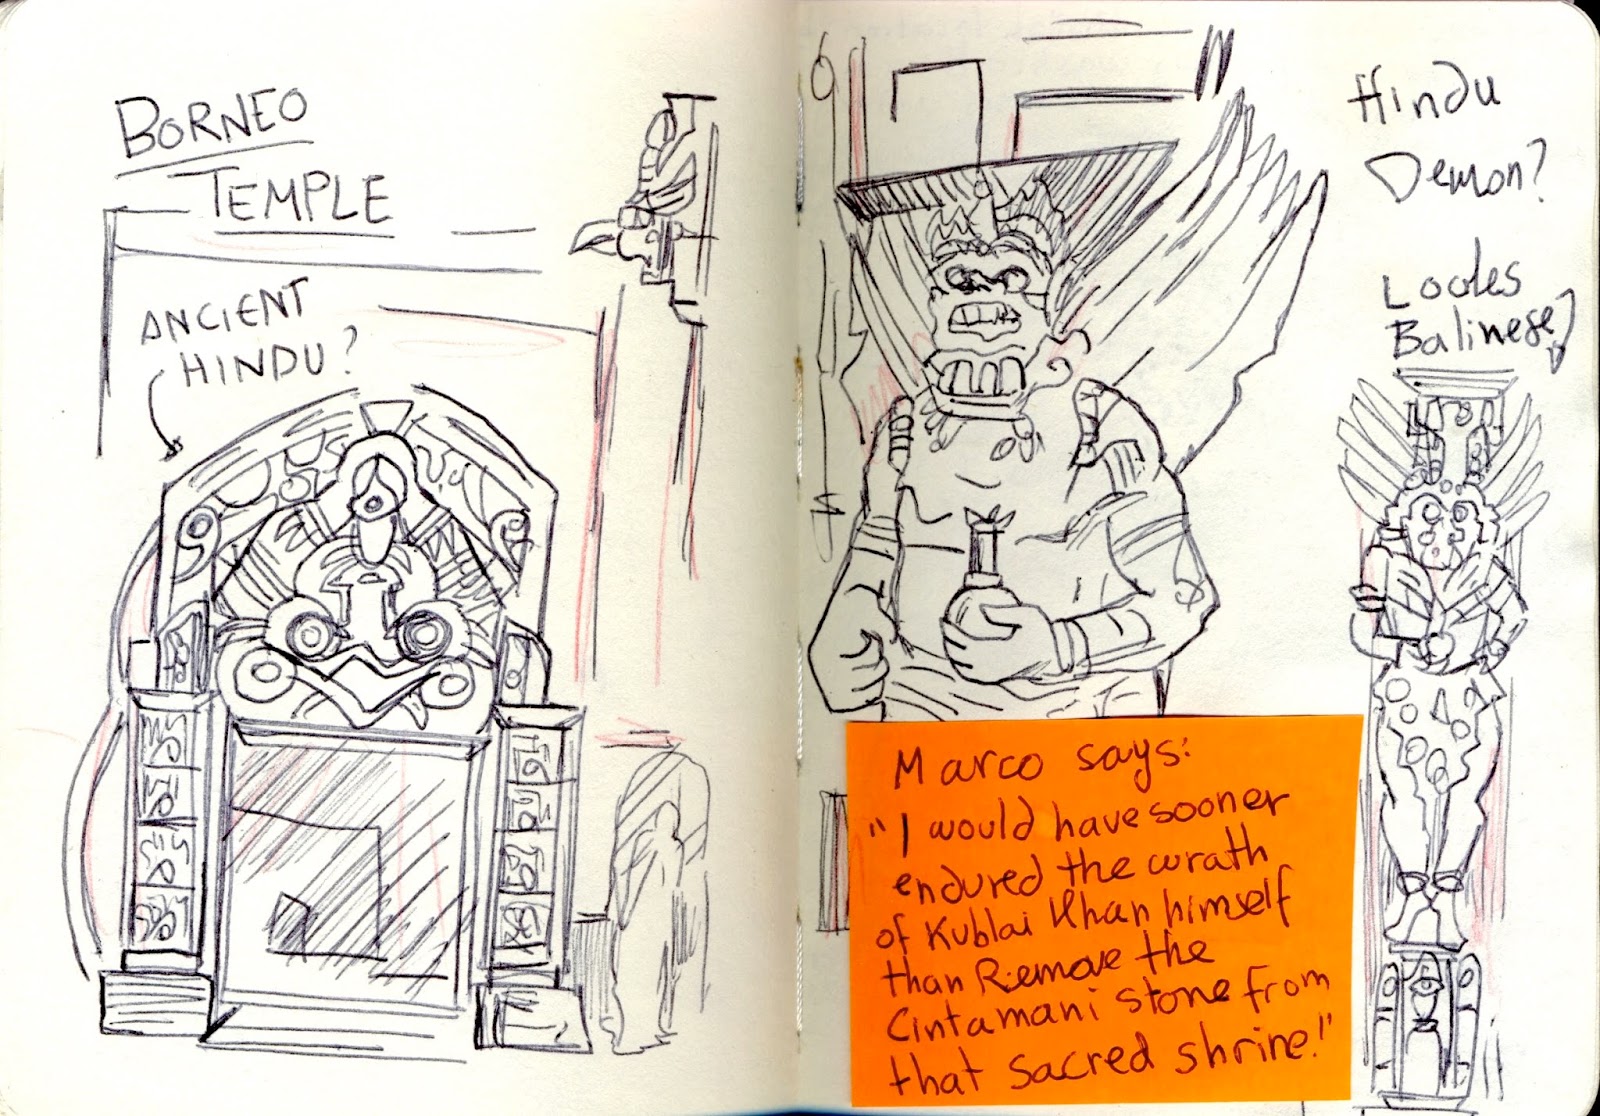 BORNEO
TEMPLE
ANCIENT
HINDU?
Hindu
Demon?
Looks
Balinese?
Marco says:
"I would have sooner
endured the wrath
of Kublai Khan himself
than Remove the
Cintamani stone from
that sacred shrine!"